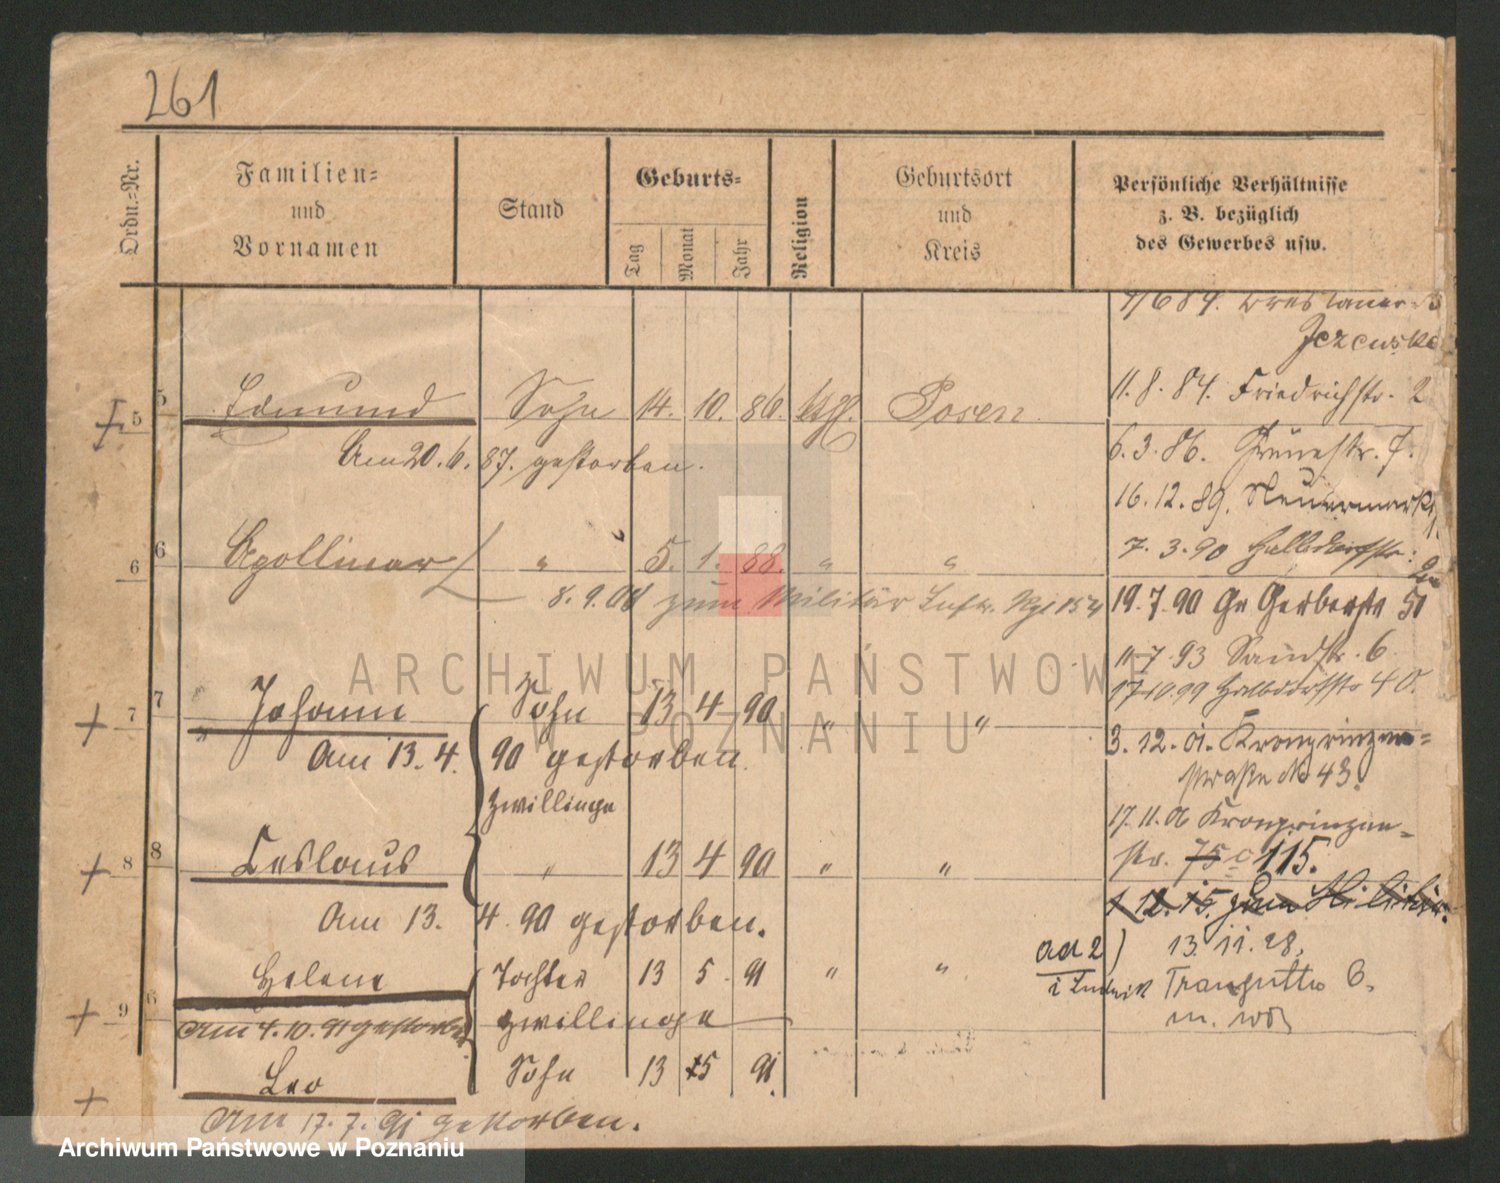 261
Ordn.=Nr.
Familien=
und
Vornamen
Stand
Geburts=
Tag
Monat
Jahr
Religion
Geburtsort
und
Kreis
Persönliche Verhältnisse
z. B. bezüglich
des Gewerbes usw.
5 5 Edmund Sohn 14. 10. 86. Posen
Am 20. 6. 87. gestorben.
6 6 Apollinar " 5. 1. 88. " "
8. 9. 08 zum Militär
7 7 Johann Sohn 13 4 90 " "
Am 13. 4. 90 gestorben.
Zwillinge
8 8 Ceslaus " 13 4 90 " "
Am 13. 4. 90 gestorben.
9 6 Helene Tochter 13 5 91 " "
Am 4. 10. 91 gestorben
Zwillinge
Leo Sohn 13 5 91
Am 17. 7. 91 gestorben.
11. 8. 84. Friedrichstr. 2
6. 3. 86. Grünestr. 7.
16. 12. 89. Neuermarkt
7. 3. 90 Halbdorfstr.
19. 7. 90 Gr Gerberstr 51
11 7. 93 Sandstr. 6.
17 10. 99 Halbdorfstr 40.
3. 12. 01. Kronprinzen=
straße No 43.
17. 11. 06 Kronprinzen=
str. 75 c 115.
1. 12. 15. zum Militär.
ad 2) 13. 11. 28.
i Ludwik
ARCHIWUM PAŃSTWOWE
W POZNANIU
Archiwum Państwowe w Poznaniu